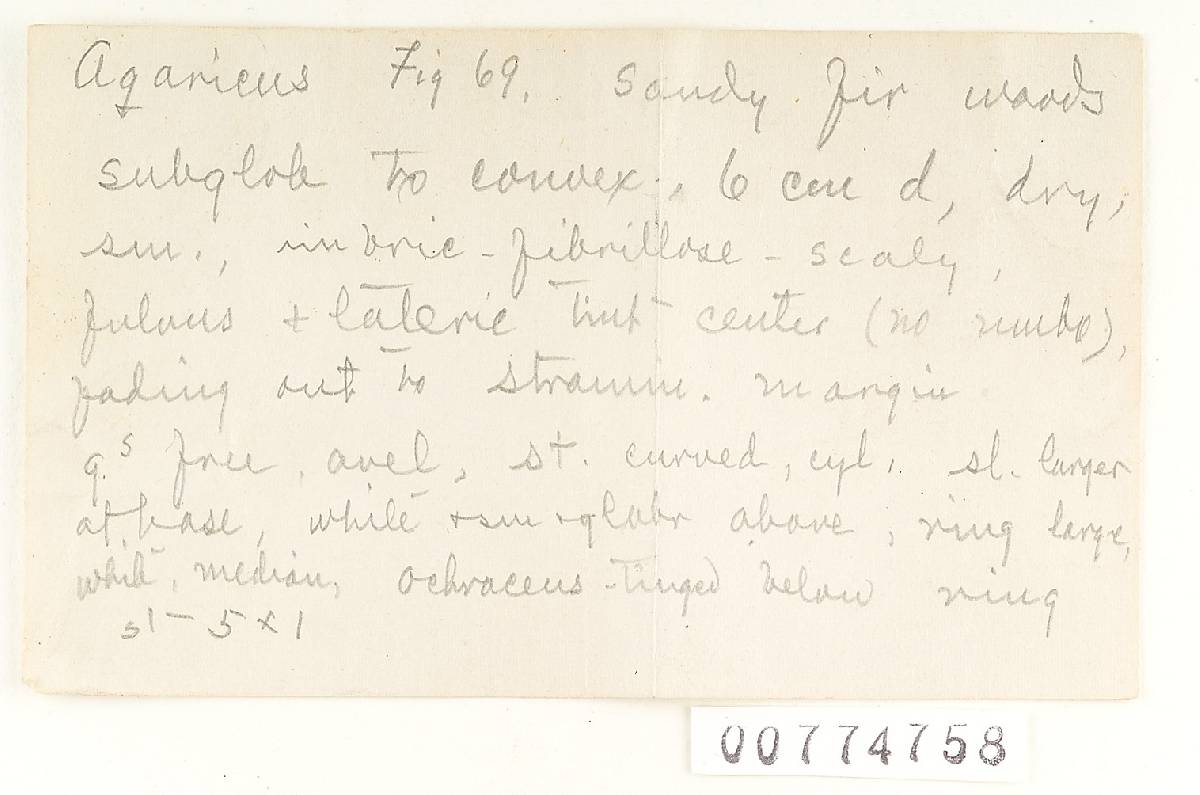 Agaricus Fig 69. Sandy fir woods
subglob to convex, 6 cm d, dry,
sm., imbric-fibrillose-scaly,
fulvus + lateric tint center (no umbo),
fading out to stramin. margin
g.s free, avel, st. curved, cyl, sl. larger
at base, white + sm + glabr above, ring large,
white, median, ochraceus-tinged below ring
st - 5 x 1
00774758